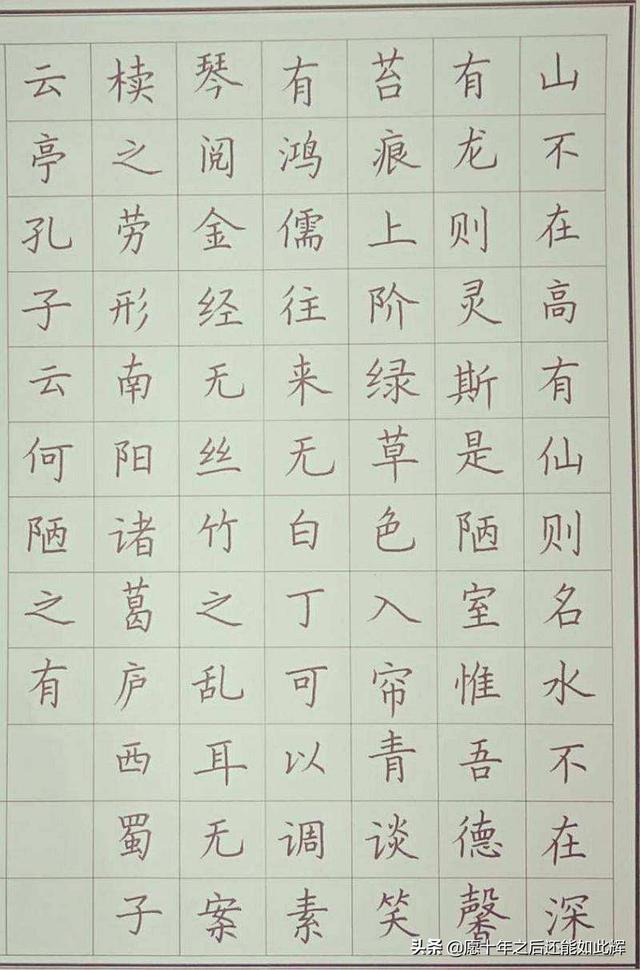 山不在高有仙则名水不在深
有龙则灵斯是陋室惟吾德馨
苔痕上阶绿草色入帘青谈笑
有鸿儒往来无白丁可以调素
琴阅金经无丝竹之乱耳无案
椟之劳形南阳诸葛庐西蜀子
云亭孔子云何陋之有
头条 @愿十年之后还能如此辉